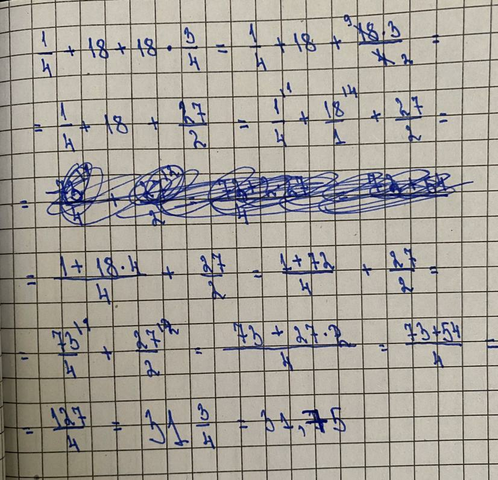 1/4 + 18 + 18 · 3/4 = 1/4 + 18 + 9 18·3/4 2 =
= 1/4 + 18 + 27/2 = 1/4 \1 + 18/1 \4 + 27/2 =
= (1 + 18·4)/4 + 27/2 = (1+72)/4 + 27/2 =
= 73/4 \1 + 27/2 \2 = (73 + 27·2)/4 = (73+54)/4 =
= 127/4 = 31 3/4 = 31,75